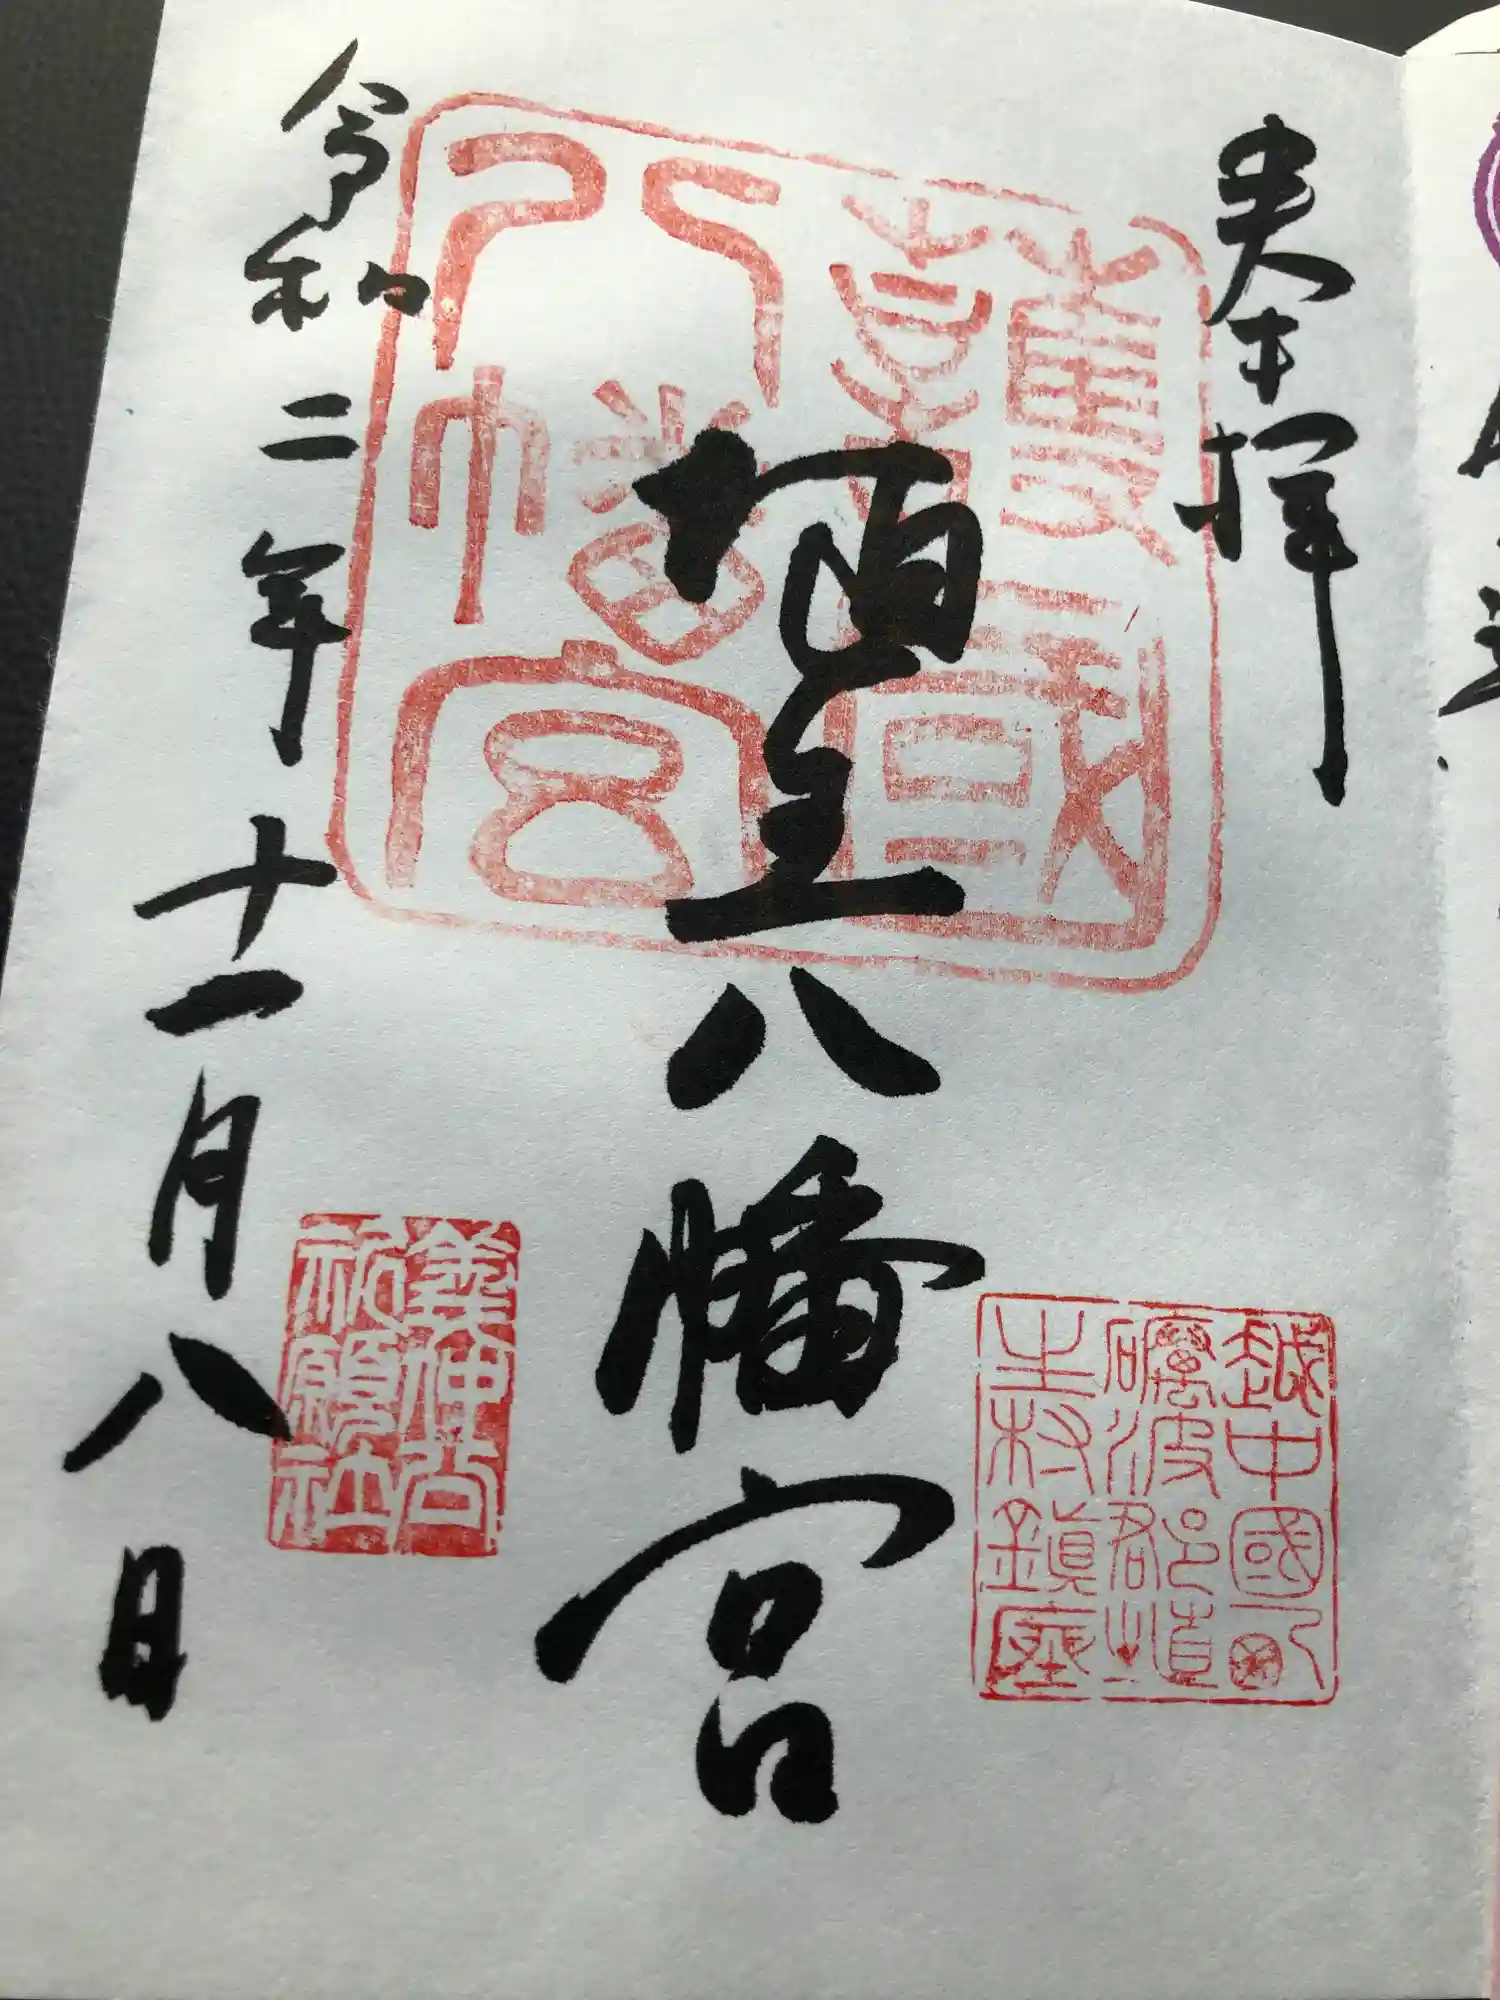 奉拝
護國
八幡宮
埴生八幡宮
越中國八
礪波郡埴
生村鎮座
義仲公
祈願社
令和二年十一月八日